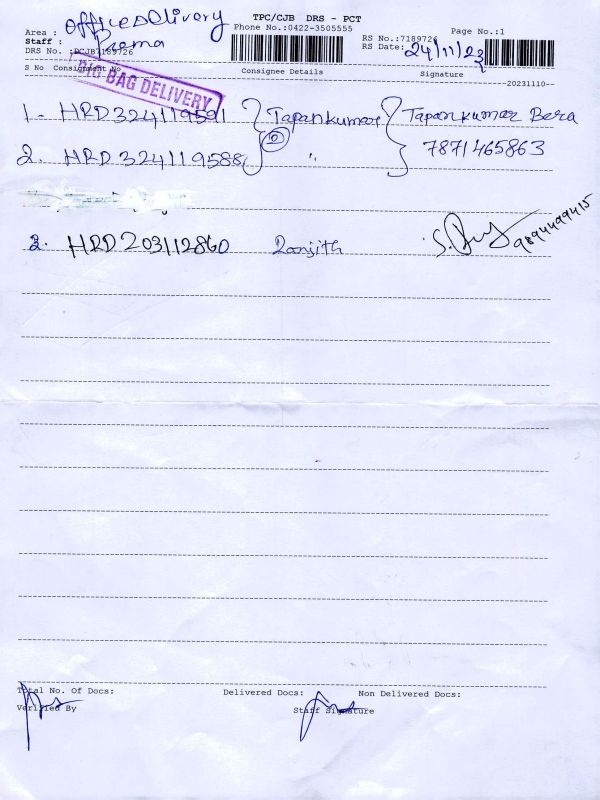 TPC/CJB DRS - PCT
Phone No.:0422-3505555
Page No.:1
Area : Office Delivery
Staff : Prema
DRS No. :PCJB7189726
RS No.:7189726
RS Date: 24/11/23
S No Consignment No Consignee Details Signature
20231110
BIG BAG DELIVERY
1. HRD324119591 Tapankumar Tapankumar Bera
2
2. HRD324119588 " 7871465863
3. HRD203112860 Ranjith 9894499415
Total No. Of Docs: Delivered Docs: Non Delivered Docs:
Verified By Staff Signature